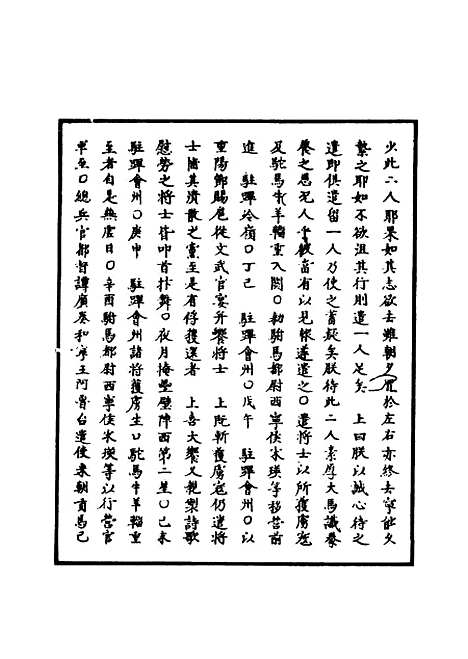 少此二人耶果如其志欲去雖朝夕置於左右亦終去寧能久
繫之耶如不欲沮其行則遣一人足矣　上曰朕以誠心待之
遣即俱遣留一人乃使之蓄疑矣朕待此二人素厚犬馬識豢
養之恩犯人乎彼當有以見報遂遣之〇遣將士以所獲虜寇
及駝馬牛羊輜重入関〇勑駙馬都尉西寧侯宋瑛等移營前
進　駐蹕冷嶺〇丁巳　駐蹕會州〇戊午　駐蹕會州〇以
重陽節賜扈從文武官宴并饗將士　上既斬獲虜寇仍遣將
士當其潰散之黨至是有俘獲還者　上喜大饗又親製詩歌
慰勞之將士皆叩首抃舞〇夜月掩壘壁陣西第二星〇己未
駐蹕會州〇庚申　駐蹕會州諸將獲虜生口駝馬牛羊輜重
至者自是無虛日〇辛酉駙馬都尉西寧侯宋瑛等以行營官
軍至〇總兵官都督譚廣奏和寧王阿魯台遣使來朝貢馬已